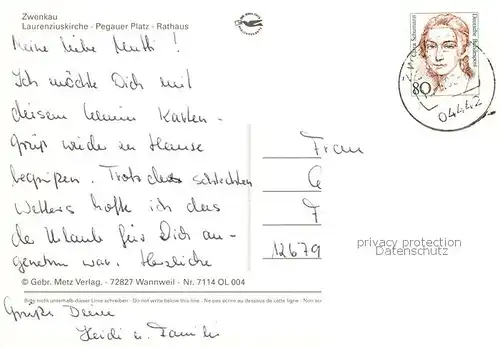 Zwenkau
Laurenziuskirche - Pegauer Platz - Rathaus
Meine liebe Mutti!
Ich möchte Dich mit
diesem kleinen Karten-
gruß wieder in Hause
begrüßen. Trotz des schlechten
Wetters hoffe ich das
de Urlaub für Dich an-
genehm war. Herzliche
Grüße Deine
Heidi u. Familie
© Gebr. Metz Verlag. - 72827 Wannweil - Nr. 7114 OL 004
Bitte nicht unterhalb dieser Linie schreiben - Do not write below this line - Ne pas écrire au dessous de cette ligne - Non
Clara Schumann
Deutsche Bundespost
80
04442
Frau
12679
privacy protection
Datenschutz